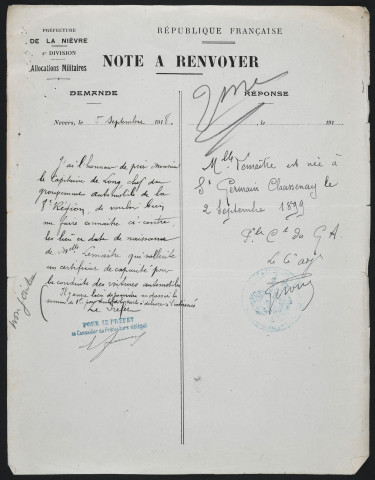 PRÉFECTURE
DE LA NIÈVRE
DIVISION
Allocations Militaires
RÉPUBLIQUE FRANÇAISE
NOTE A RENVOYER
DEMANDE
Nevers, le Septembre 1918.
J'ai l'honneur de prier Monsieur
le Capitaine de Long, chef du
groupement automobile de la
Région, de vouloir bien
me faire connaître ci-contre,
les lieu et date de naissance
de Melle Lemaître qui sollicite
un certificat de capacité pour
la conduite des voitures automobiles
Le Préfet
POUR LE PRÉFET
Le Conseiller de Préfecture délégué
non jointe
RÉPONSE
, le 191
Melle Lemaître est née à
St Germain Chassenay le
2 Septembre 1899